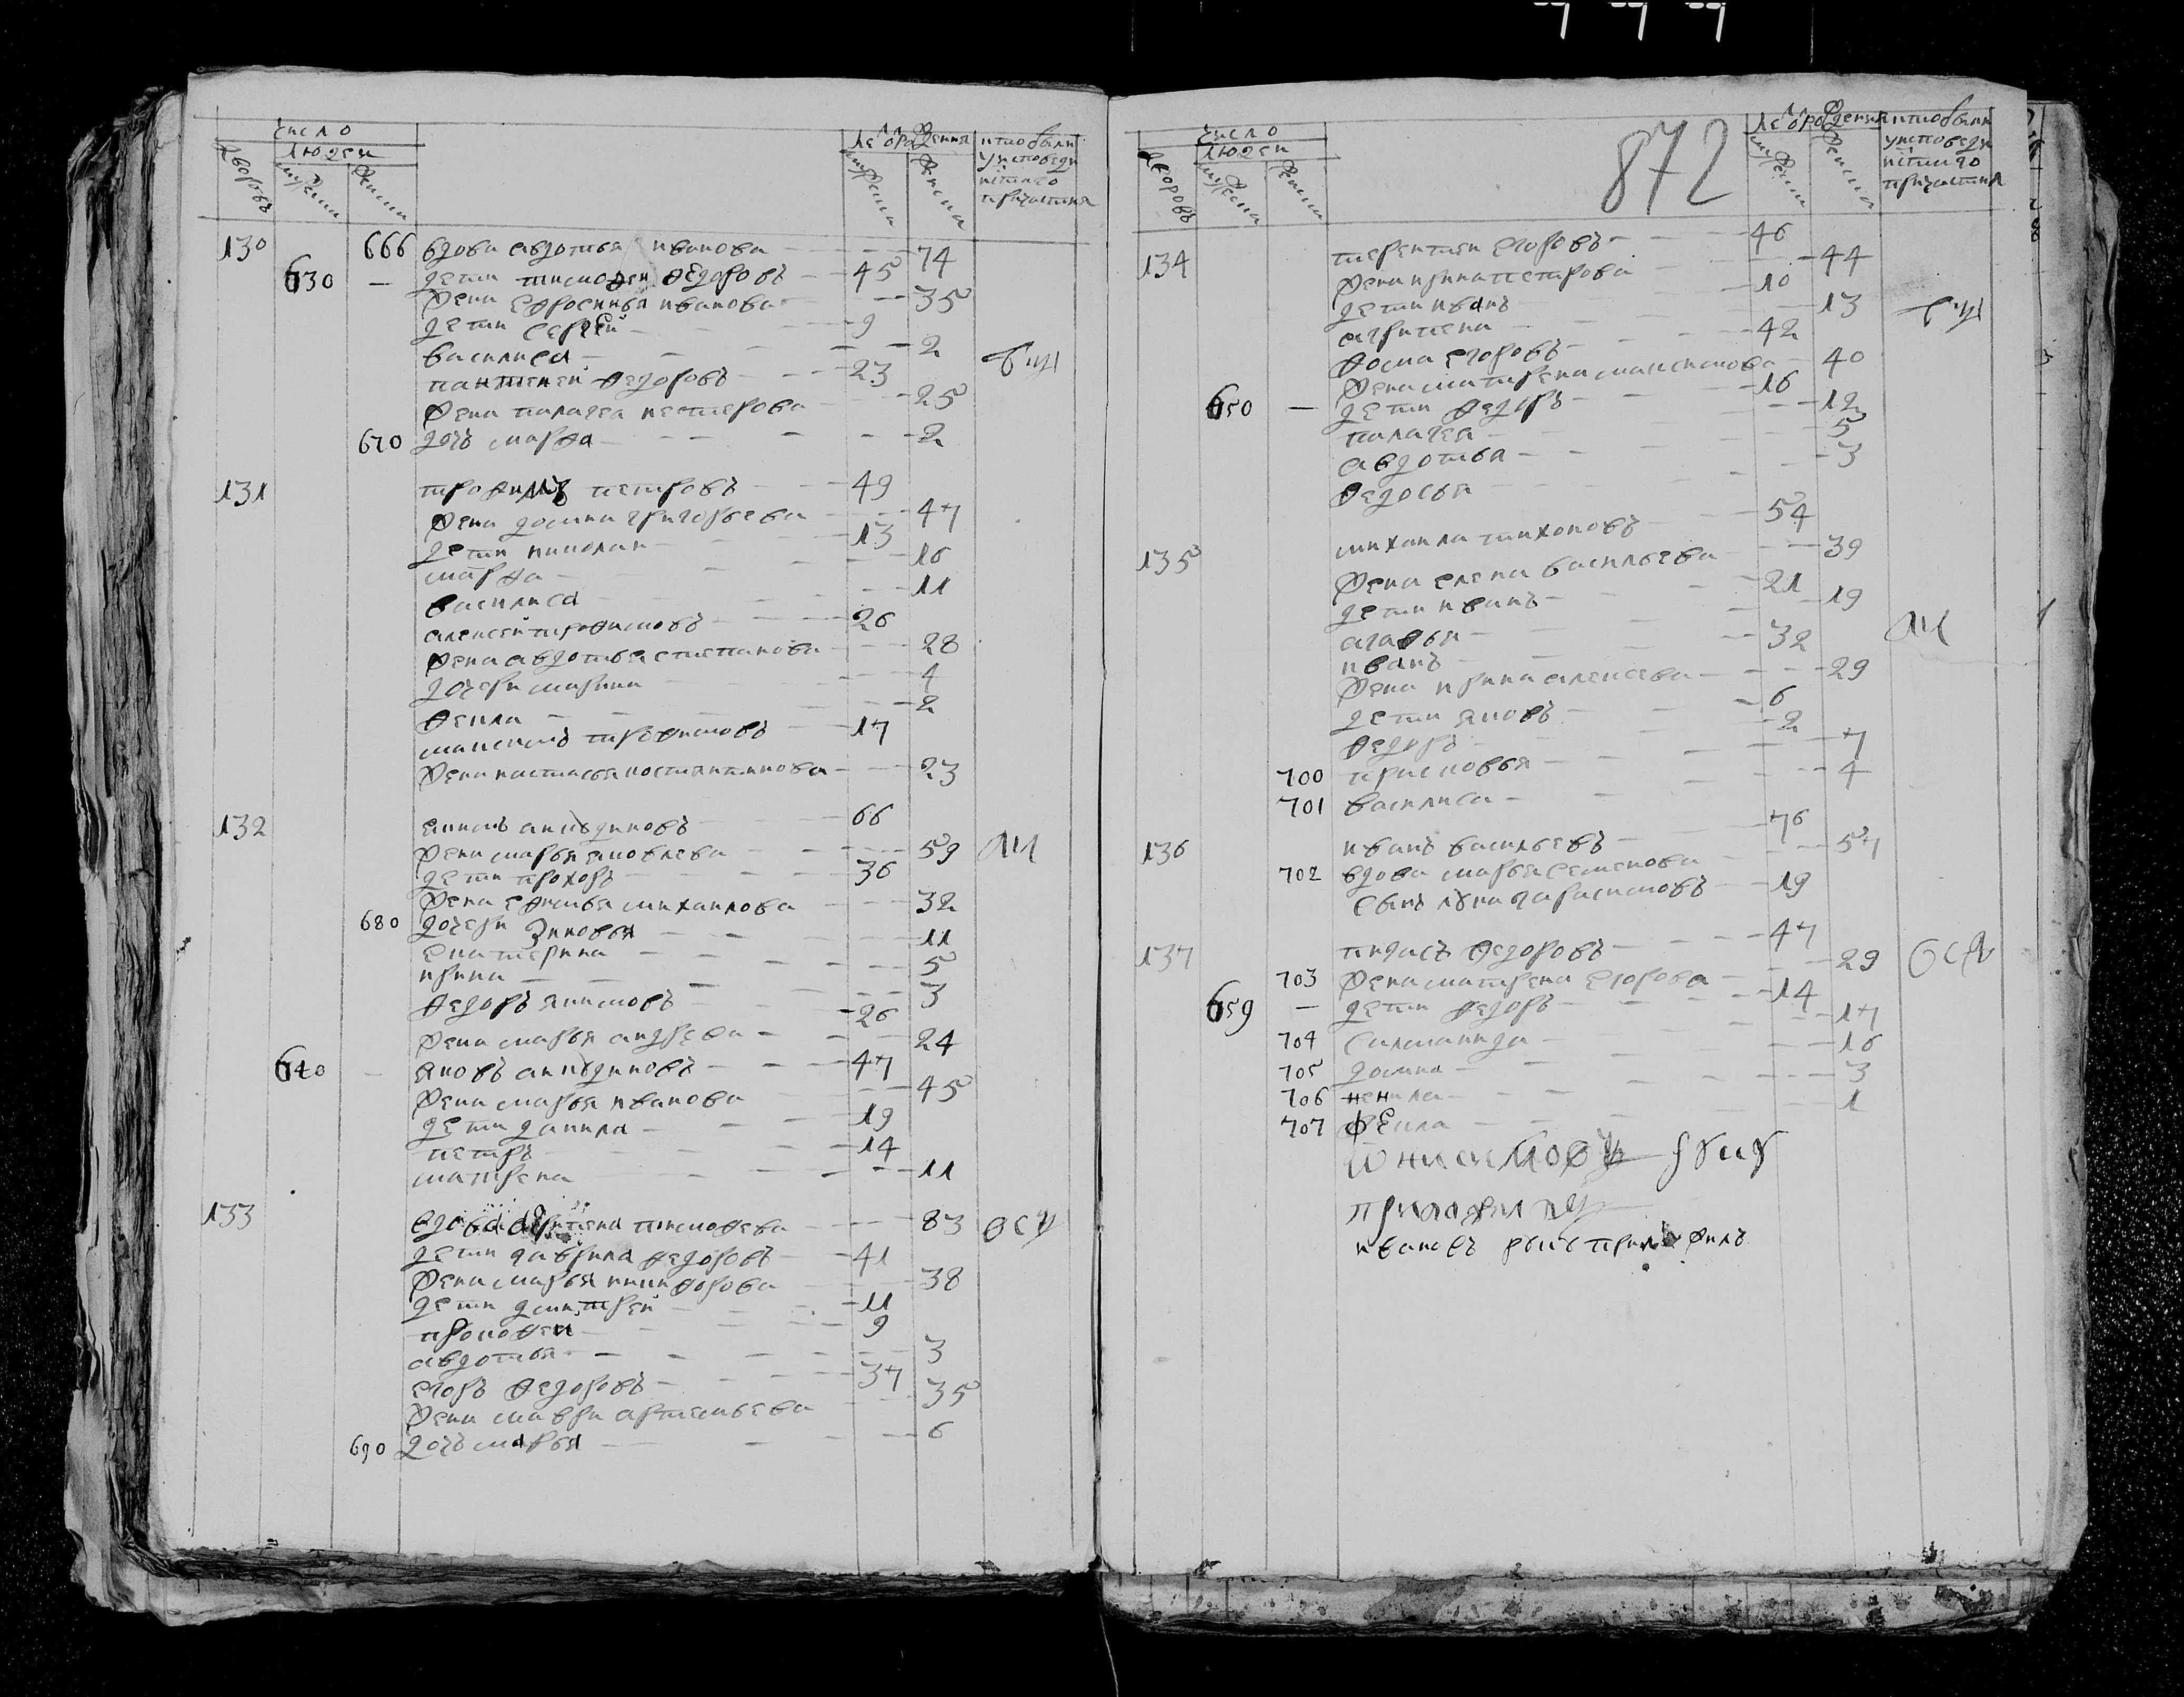 число
людей
дворовъ
мужеска
женска
лѣ о рождении
мужеска
женска
кто были
у исповеди
и святаго
причастия
130 666 вдова авдотья иванова 74
630 — дети тимофей федоровъ 45
жена ефросинья иванова 35
дети сергей 9
василиса 2
пантелей федоровъ 23
жена палагея нестерова 25
670 дочь марфа 2
131 трофимъ петровъ 49
жена домна григорьева 47
дети николаи 13
марфа 16
василиса 11
алексей трофимовъ 26
жена авдотья степанова 28
дочери марина 4
фекла 2
максимъ трофимовъ 17
жена настасья костянтинова 23
132 якимъ акиндиновъ 66
жена марья яковлева 59
дети прохоръ 36
жена ефимья михаилова 32
680 дочери зиновья 11
екатерина 5
ирина 3
федоръ якимовъ 26
жена марья андреева 24
640 — яковъ акиндиновъ 47
жена марья иванова 45
дети данила 19
петръ 14
матрена 11
133 вдова агрипена тимофеева 83
дети гаврила федоровъ 41
жена марья никифорова 38
дети дмитрей 11
прокофеи 9
авдотья 3
егоръ федоровъ 37
жена мавра артемьева 35
690 дочь марья 6
872
число
людей
дворовъ
мужеска
женска
лѣ о рождения
мужеска
женска
кто были
у исповеди
и святаго
причастия
134 терентеи егоровъ 46
жена ирина петрова 44
дети иванъ 10
агрипена 13
фома егоровъ 42
жена матрена максимова 40
650 — дети федоръ 16
палагея 12
авдотья 5
федосья 3
135 михаила тихоновъ 54
жена елена васильева 39
дети иванъ 21
агафья 19
иванъ 32
жена ирина алексеева 29
дети яковъ 6
федоръ 2
700 прасковья 7
701 василиса 4
136 иванъ васильевъ 76
702 вдова марья семенова 57
сынъ лука гарасимовъ 19
137 федоровъ 47
703 жена матрена егорова 29
659 — дети федоръ 14
704 саламанида 17
705 домна 16
706 ненила 3
707 фекла 1
руку
приложилъ
ивановъ руку приложилъ